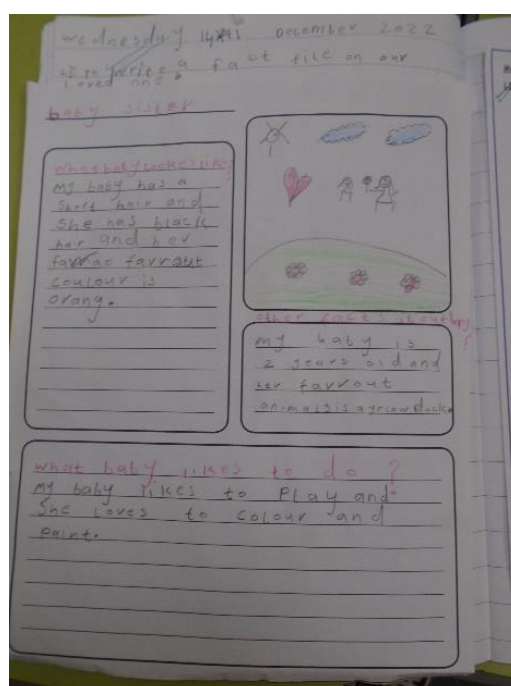 Wednesday 14th December 2022
LO to write a fact file on our
loved one.
baby sister
what baby lookes like?
My baby has a
short hair and
She has black
hair and her
favrout
coulour is
orang.
other facts about baby?
my baby is
2 years old and
her favrout
animals is a yellow duck
what baby likes to do ?
My baby likes to Play and
She Loves to colour and
Paint.